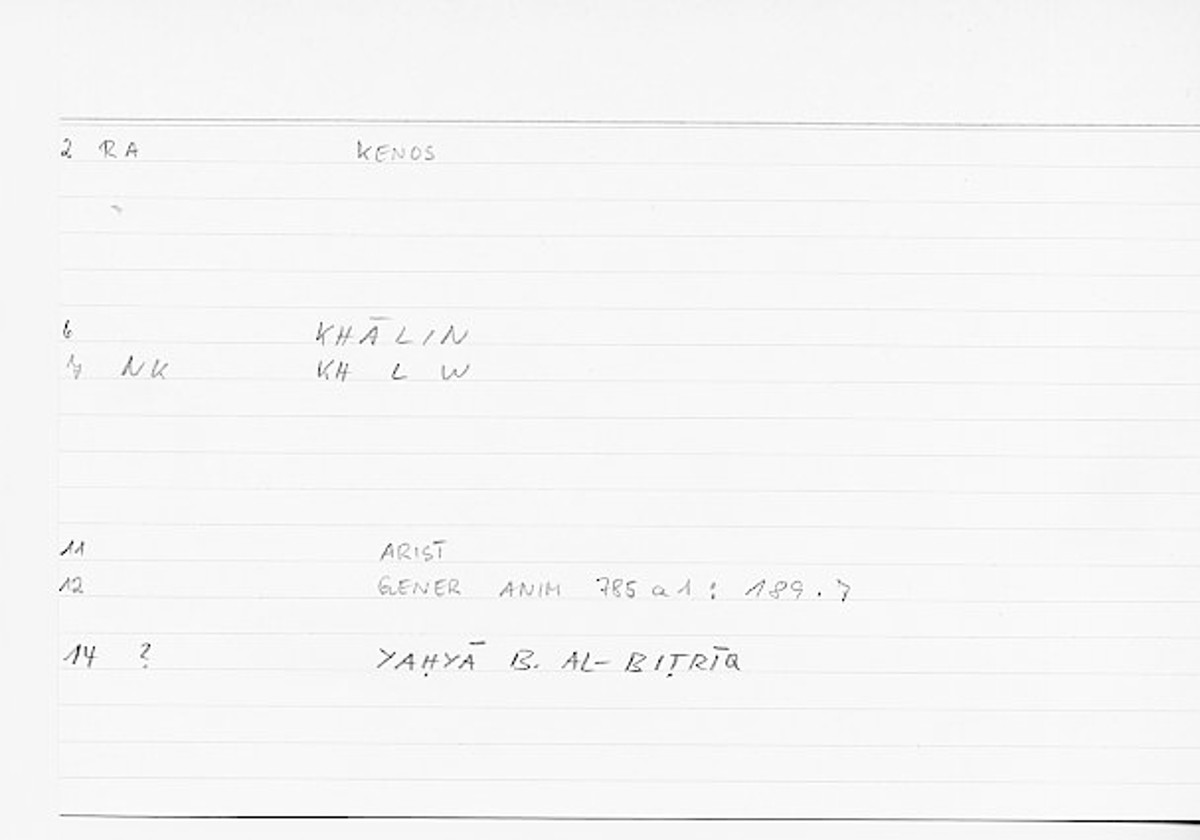 2 RA KENOS
6 KHĀLIN
7 NK KH L W
11 ARIST
12 GENER ANIM 785 a 1 : 189.7
14 ? YAḤYĀ B. AL-BIṬRĪQ